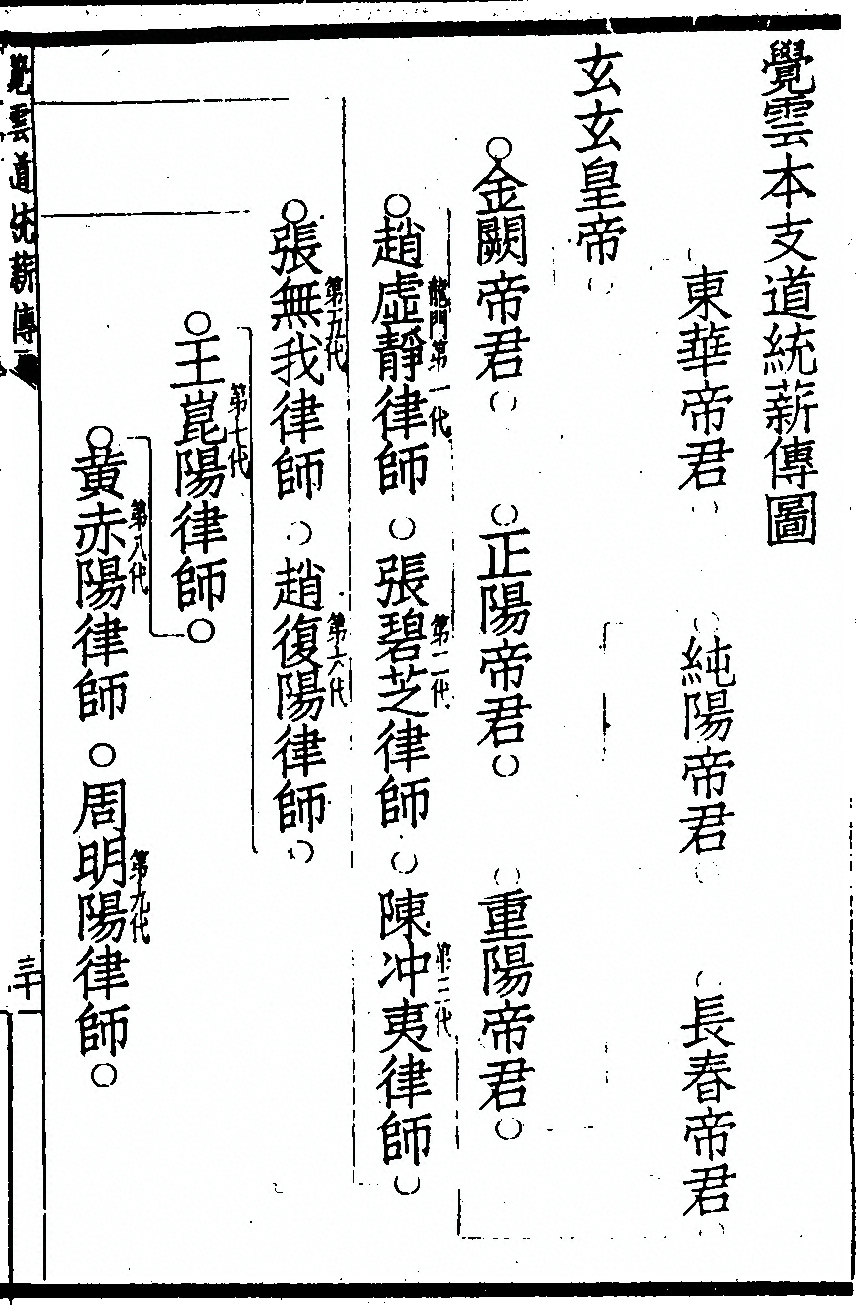 覺雲本支道統薪傳圖
東華帝君 純陽帝君 長春帝君
玄玄皇帝
金闕帝君 正陽帝君 重陽帝君
龍門第一代 第二代 第三代
趙虛靜律師 張碧芝律師 陳冲夷律師
第五代 第六代
張無我律師 趙復陽律師
第七代
王崑陽律師
第八代 第九代
黄赤陽律師 周明陽律師
覺雲道統薪傳
三十